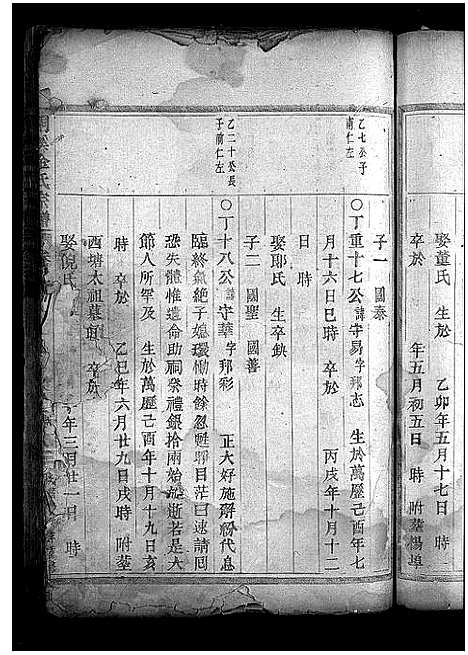 娶董氏 生於 乙卯年五月十七日 時
卒於 年五月初五日 時 附塟楊埠
子一 國泰
乙七公子
甫仁左
○丁重十七公諱守易字邦志 生於萬歷己酉年七
月十六日巳時 卒於 丙戌年十月十二
日 時
娶耶氏 生卒缺
子二 國聖 國善
乙二十公長
子甫仁左
○丁十八公諱守華字邦彩 正大好施辭粉代息
臨終氣絶子媳環慟時餘忽甦瞑目茫曰速請囘
恐失體惟遺命助祠祭禮銀拾兩始瞑逝若是大
節人所罕及 生於萬歷己酉年十月十九日亥
時 卒於 乙巳年六月廿九日戌時 附塟
西塘太祖墓
娶倪氏 年三月廿一日 時
氏宗譜